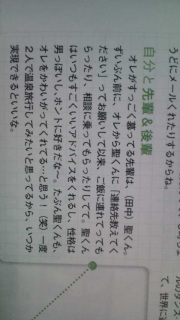 うどにメールくれたりするからね。
自分と先輩&後輩
オレがすっごく慕ってる先輩は、(田中)聖くん。
ずいぶん前に、オレから聖くんに「連絡先教えてく
ださい」ってお願いして以来、ご飯に連れてっても
らったり、相談に乗ってもらったりしてて。聖くん
はいつもすごくいいアドバイスをくれるし、性格は
男っぽいし、ホントに好きだな〜。たぶん聖くんも、
オレをかわいがってくれてる…と思う(笑)。一度
2人で温泉旅行してみたいと思ってるから、いつか
実現できるといいな。
ルのダンス
て、世界に